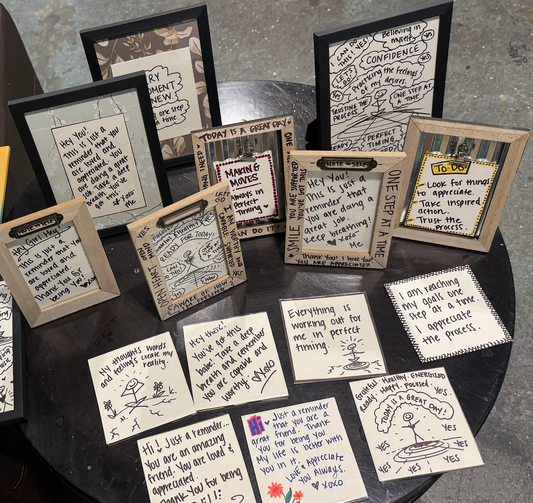 MOMENT
NEW.
one step
time
I CAN DO
THIS!
YES
Believing in
myself.
YES
LET'S
DO
CONFIDENCE
YES
Practicing the feelings
of my desires.
TRUSTING THE
PROCESS
ONE STEP AT
A TIME
PERFECT
TIMING
Hey You!
This is just a
reminder that
you are loved
and appreciated.
You are doing a
great job.
Take a deep
breath. You've
got this.
xoxo
me
TODAY IS A GREAT DAY!
MAKING
MOVES
Always in
Perfect
Timing
NOTE to SELF
Hey You!
This is Just a
reminder that
You are doing
a great Job.
Keep breathing!
xoxo
Me
SMILE YOU ARE SUPPORTED
YOU'VE GOT THIS
ONE STEP AT A TIME
Thank You! I love You
YOU ARE APPRECIATED
TO DO
Look for things
to appreciate.
Take inspired
action.
Trust the
process.
NOTE to SELF
Hey Girl Hey!
This is Just a
reminder that
you are loved
and
appreciated.
Thank You for
being You!
READY FOR TODAY!
My thoughts words
and feelings create my
reality.
Hey there.
You've got this.
Take a deep
breath and remember
you are capable and
worthy.
xoxo
Everything is
working out for
me in perfect
timing.
I am reaching
my goals one
step at a time.
I appreciate
the process.
Hi Just a reminder...
You are an amazing
friend. You are loved &
appreciated.
Thank-You for being
Hi Just a reminder
that you are a
great friend. Thank
You for being you.
My life is better with
you in it.
LOVE & Appreciate
You Always.
xoxo
Grateful. Healthy. ENERGIZED
Ready. Happy. Focused.
YES
TODAY IS A
GREAT DAY!
YES
YES
YES
YES
YES
YES